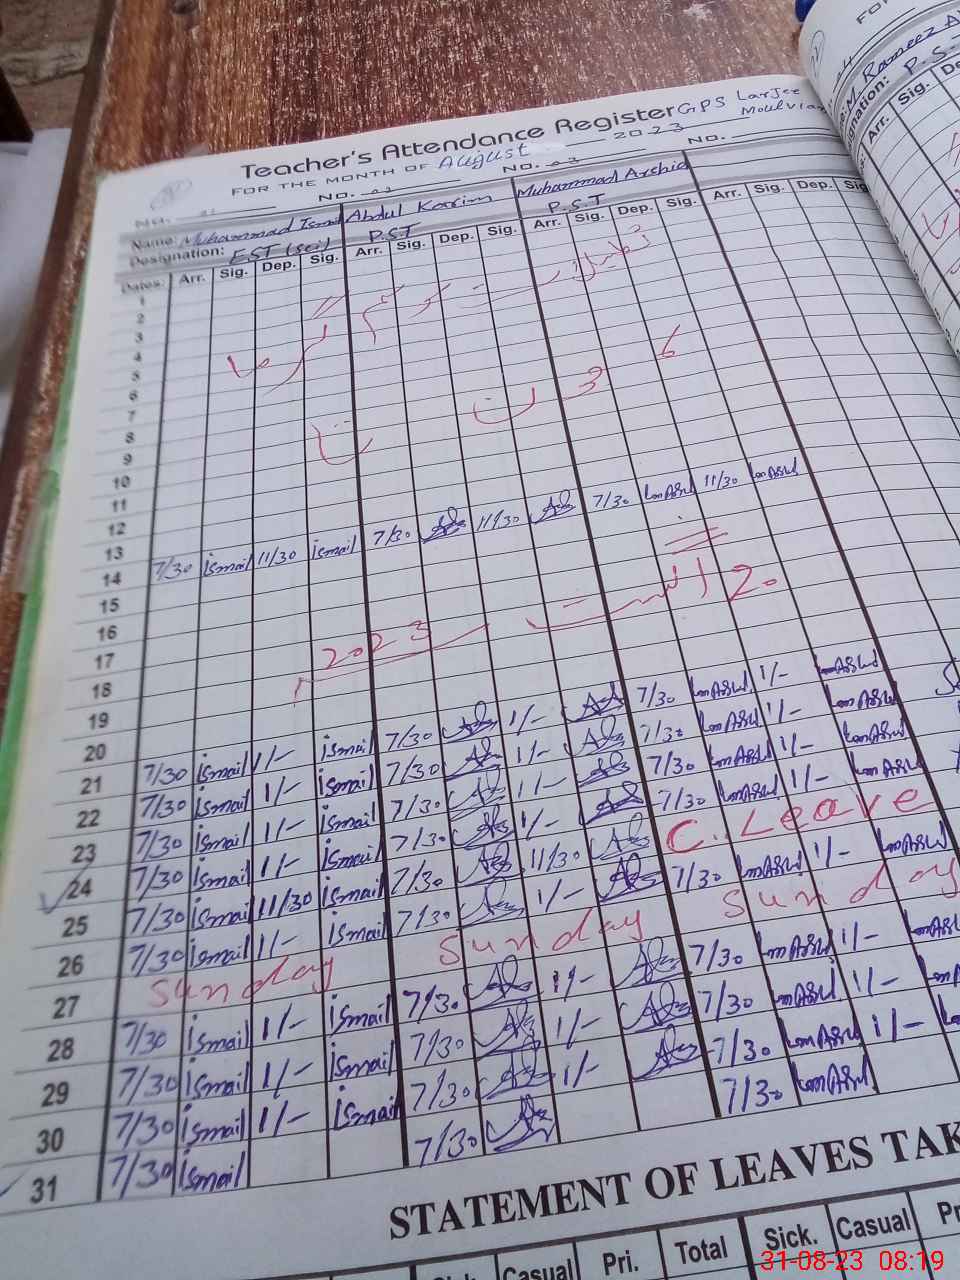 Teacher's Attendance Register GPS Larjee
FOR THE MONTH OF August 2023 Moulvian
NO. 01 NO. 02 NO. 03 NO.
Name: Muhammad Ismail Abdul Karim Muhammad Arshid
Designation: EST (sci) P.S.T P.S.T
Dates: Arr. Sig. Dep. Sig. Arr. Sig. Dep. Sig. Arr. Sig. Dep. Sig. Arr. Sig. Dep. Sig
1
2
3
4
5
6
7
8
9
10
11
12
13
14 7/30 ismail 11/30 ismail 7/30 11/30 7/30 11/30
15
16
17
18
19
20
21 7/30 ismail 1/- ismail 7/30 1/- 7/30 1/-
22 7/30 ismail 1/- ismail 7/30 1/- 7/30 1/-
23 7/30 ismail 1/- ismail 7/30 1/- 7/30 1/-
24 7/30 ismail 1/- ismail 7/30 1/- 7/30 1/-
25 7/30 ismail 11/30 ismail 7/30 11/30 C. Leave
26 7/30 ismail 1/- ismail 7/30 1/- 7/30 1/-
27 Sunday Sunday Sunday
28 7/30 ismail 1/- ismail 7/30 1/- 7/30 1/-
29 7/30 ismail 1/- ismail 7/30 1/- 7/30 1/-
30 7/30 ismail 1/- ismail 7/30 1/- 7/30 1/-
31 7/30 ismail 7/30 7/30
تعطیلات موسم گرما
20 اگست 2023
STATEMENT OF LEAVES TAK
Sick. Casual Pri. Total Sick. Casual Pri
31-08-23 08:19
M. Rameez A
Designation: P.S.T
Arr. Sig. De